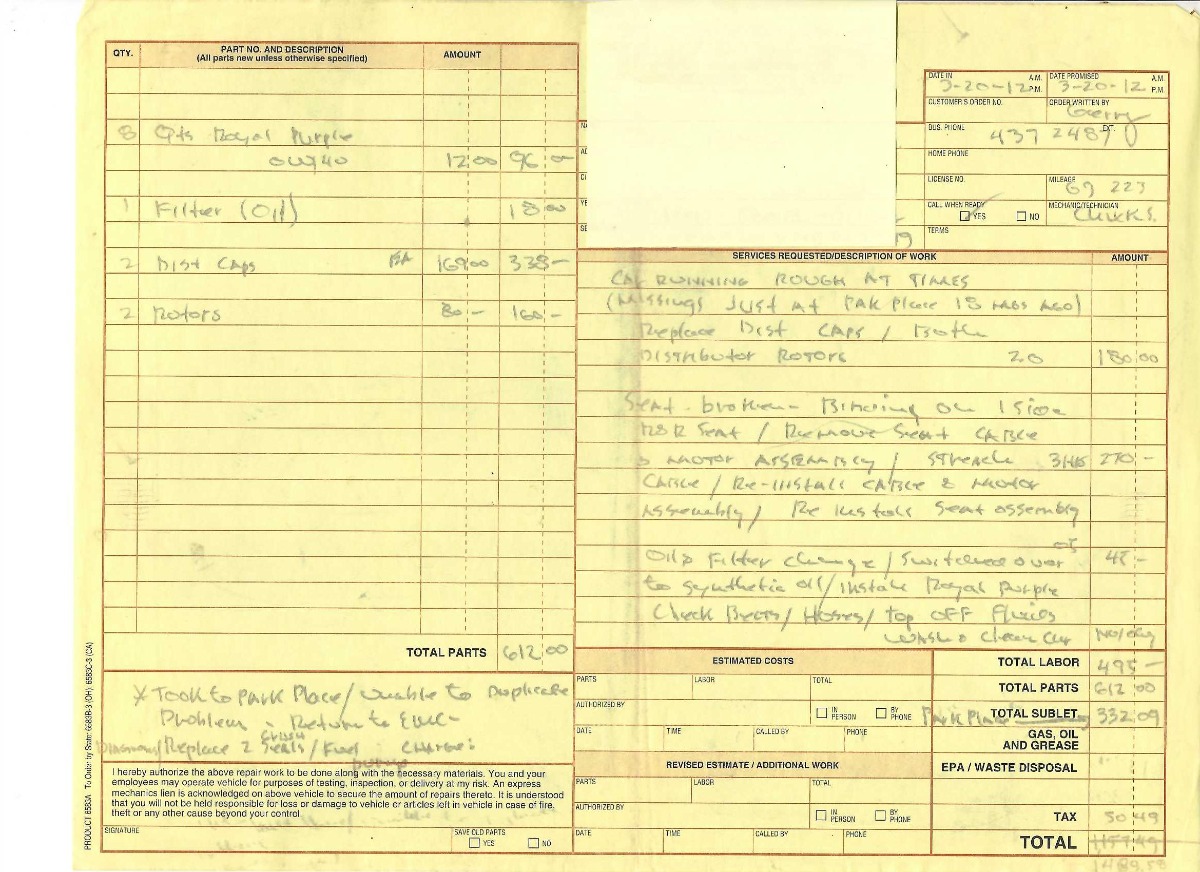 QTY. PART NO. AND DESCRIPTION AMOUNT
(All parts new unless otherwise specified)
8 Qts Royal Purple
0W40 12.00 96.-
1 Filter (Oil) 18.00
2 Dist Caps EA 169.00 338-
2 Rotors 80.- 160.-
TOTAL PARTS 612 00
* Took to Park Place / Unable to Duplicate
Problem - Return to
Replace 2 Crush Seals / Fuel
I hereby authorize the above repair work to be done along with the necessary materials. You and your
employees may operate vehicle for purposes of testing, inspection, or delivery at my risk. An express
mechanics lien is acknowledged on above vehicle to secure the amount of repairs thereto. It is understood
that you will not be held responsible for loss or damage to vehicle or articles left in vehicle in case of fire,
theft or any other cause beyond your control.
SIGNATURE SAVE OLD PARTS
YES NO
PRODUCT 6583A To Order by State: 6583B-3 (OH) 6583C-3 (CA)
DATE IN A.M. DATE PROMISED A.M.
3-20-12 P.M. 3-20-12 P.M.
CUSTOMER'S ORDER NO. ORDER WRITTEN BY
Gerry
BUS. PHONE EXT.
437 2489
HOME PHONE
LICENSE NO. MILEAGE
69 223
CALL WHEN READY MECHANIC/TECHNICIAN
YES NO Chuck S.
TERMS
SERVICES REQUESTED/DESCRIPTION OF WORK AMOUNT
CAR RUNNING ROUGH AT TIMES
(Missing Just At PAK Place 18 Mos AGO)
Replace Dist CAPS / Both
Distributor ROTORS 2.0 180.00
Seat broken - Binding on 1 side
R&R Seat / Remove Seat CABLE
& MOTOR ASSEMBLY / Stretch 3 HRS 270 -
CABLE / Re-install CABLE & Motor
Assembly / Re Install Seat assembly
Oil & Filter change / Switched over .05 45 -
to synthetic oil / install Royal Purple
Check Belts / Hoses / top OFF Fluids
WASH & Clean Car No/chg
ESTIMATED COSTS
PARTS LABOR TOTAL
AUTHORIZED BY IN PERSON BY PHONE
DATE TIME CALLED BY PHONE
REVISED ESTIMATE / ADDITIONAL WORK
PARTS LABOR TOTAL
AUTHORIZED BY IN PERSON BY PHONE
DATE TIME CALLED BY PHONE
TOTAL LABOR 495 -
TOTAL PARTS 612 00
Park Place TOTAL SUBLET 332.09
GAS, OIL
AND GREASE
EPA / WASTE DISPOSAL
TAX 50 49
TOTAL 1157.49
1489.58